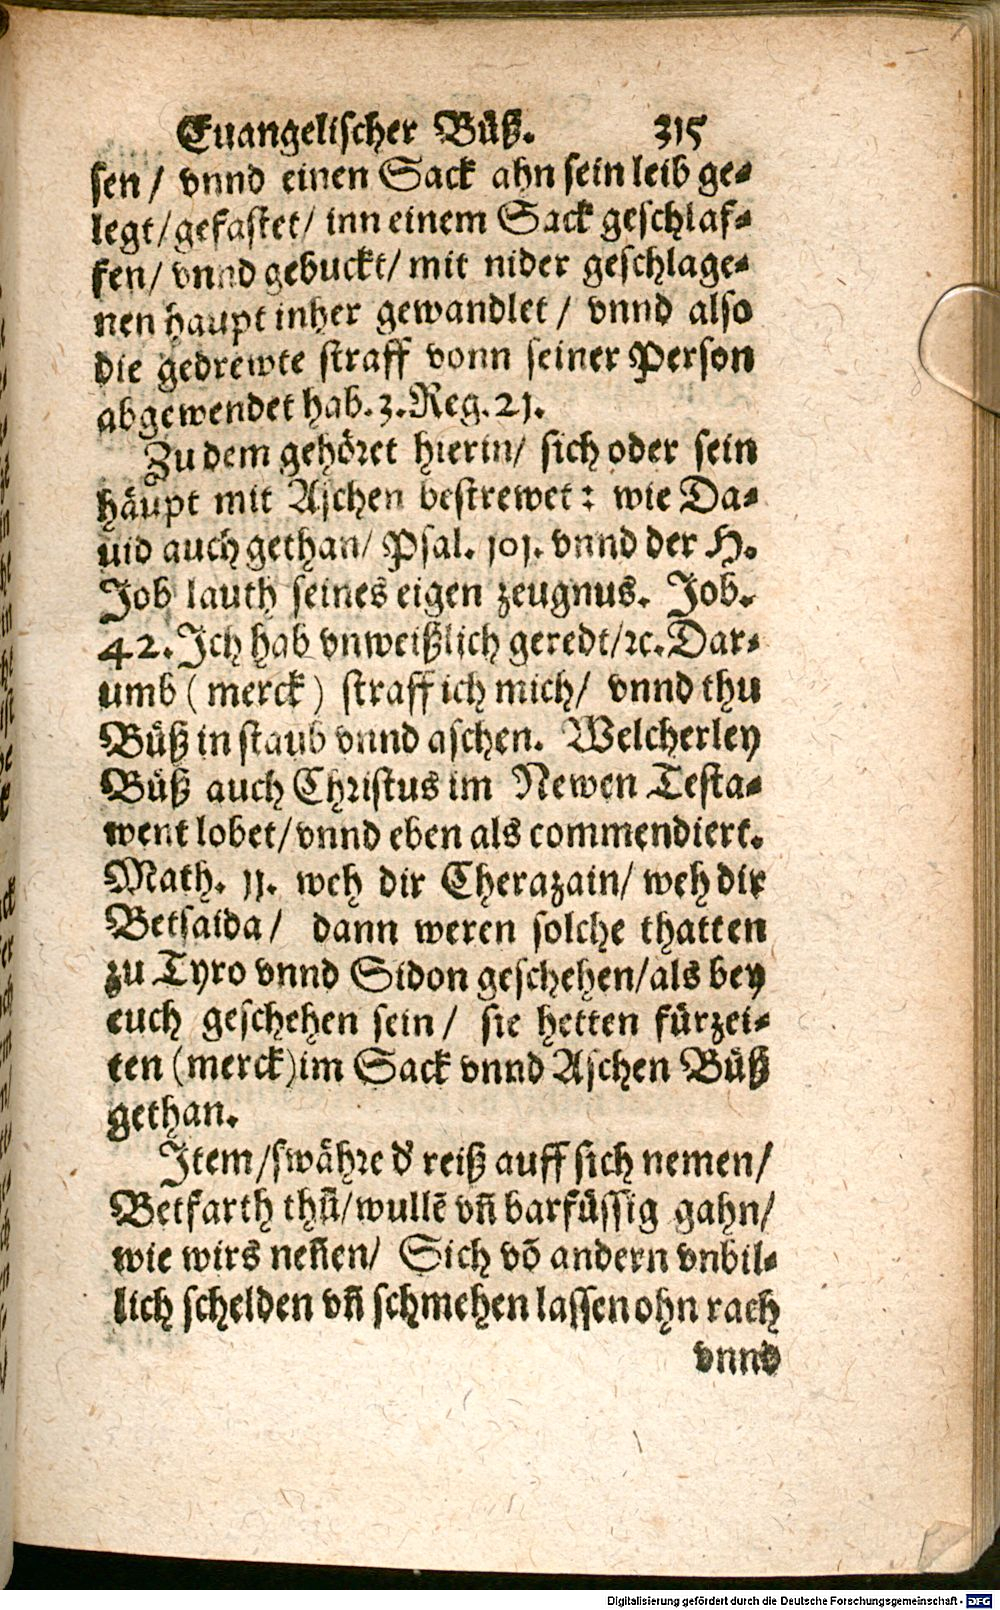 Euangelischer Bůß. 315
sen/ vnnd einen Sack ahn sein leib ge-
legt/gefastet/ inn einem Sack geschlaf-
fen/ vnnd gebuckt/ mit nider geschlage-
nen haupt inher gewandlet/ vnnd also
die gedrewte straff vonn seiner Person
abgewendet hab. 3. Reg. 21.
Zu dem gehöret hierin/ sich oder sein
häupt mit Aschen bestrewet: wie Da-
uid auch gethan/ Psal. 101. vnnd der H.
Job lauth seines eigen zeugnus. Job.
42. Ich hab vnweißlich geredt/ꝛc. Dar-
umb (merck) straff ich mich/ vnnd thu
Bůß in staub vnnd aschen. Welcherley
Bůß auch Christus im Newen Testa-
went lobet/vnnd eben als commendiert.
Math. 11. weh dir Cherazain/ weh dir
Betsaida/ dann weren solche thatten
zu Tyro vnnd Sidon geschehen/als bey
euch geschehen sein/ sie hetten fürzei-
ten (merck) im Sack vnnd Aschen Bůß
gethan.
Item/swähre d' reiß auff sich nemen/
Betfarth thů/wullē vñ barfüssig gahn/
wie wirs neñen/ Sich võ andern vnbil-
lich schelden vñ schmehen lassen ohn rach
vnnd
Digitalisierung gefördert durch die Deutsche Forschungsgemeinschaft - DFG